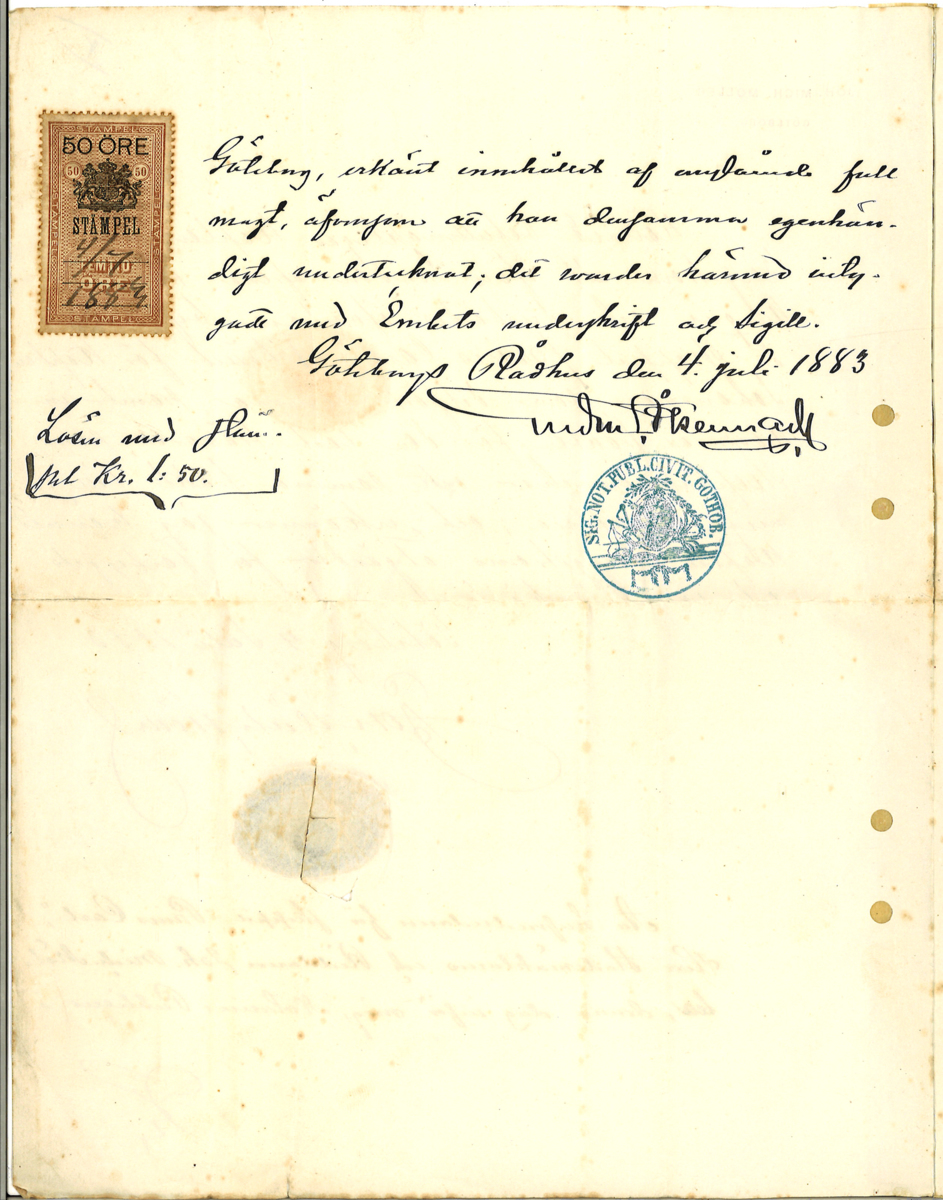 STÄMPEL
50 ÖRE
50 50
STÄMPEL
4/7
FEMTIO
ÖRE
1883
STÄMPEL
Göteborg, erkänt innehållet af omstående full
magt, äfvensom att han densamma egenhän-
digt undertecknat; det warder härmed inty-
gadt med Embets underskrift och Sigill.
Göteborgs Rådhus den 4. juli 1883
Lösen med stäm-
pel Kr. 1: 50.
SIG. NOT. PUBL. CIVIT. GOTHOB.